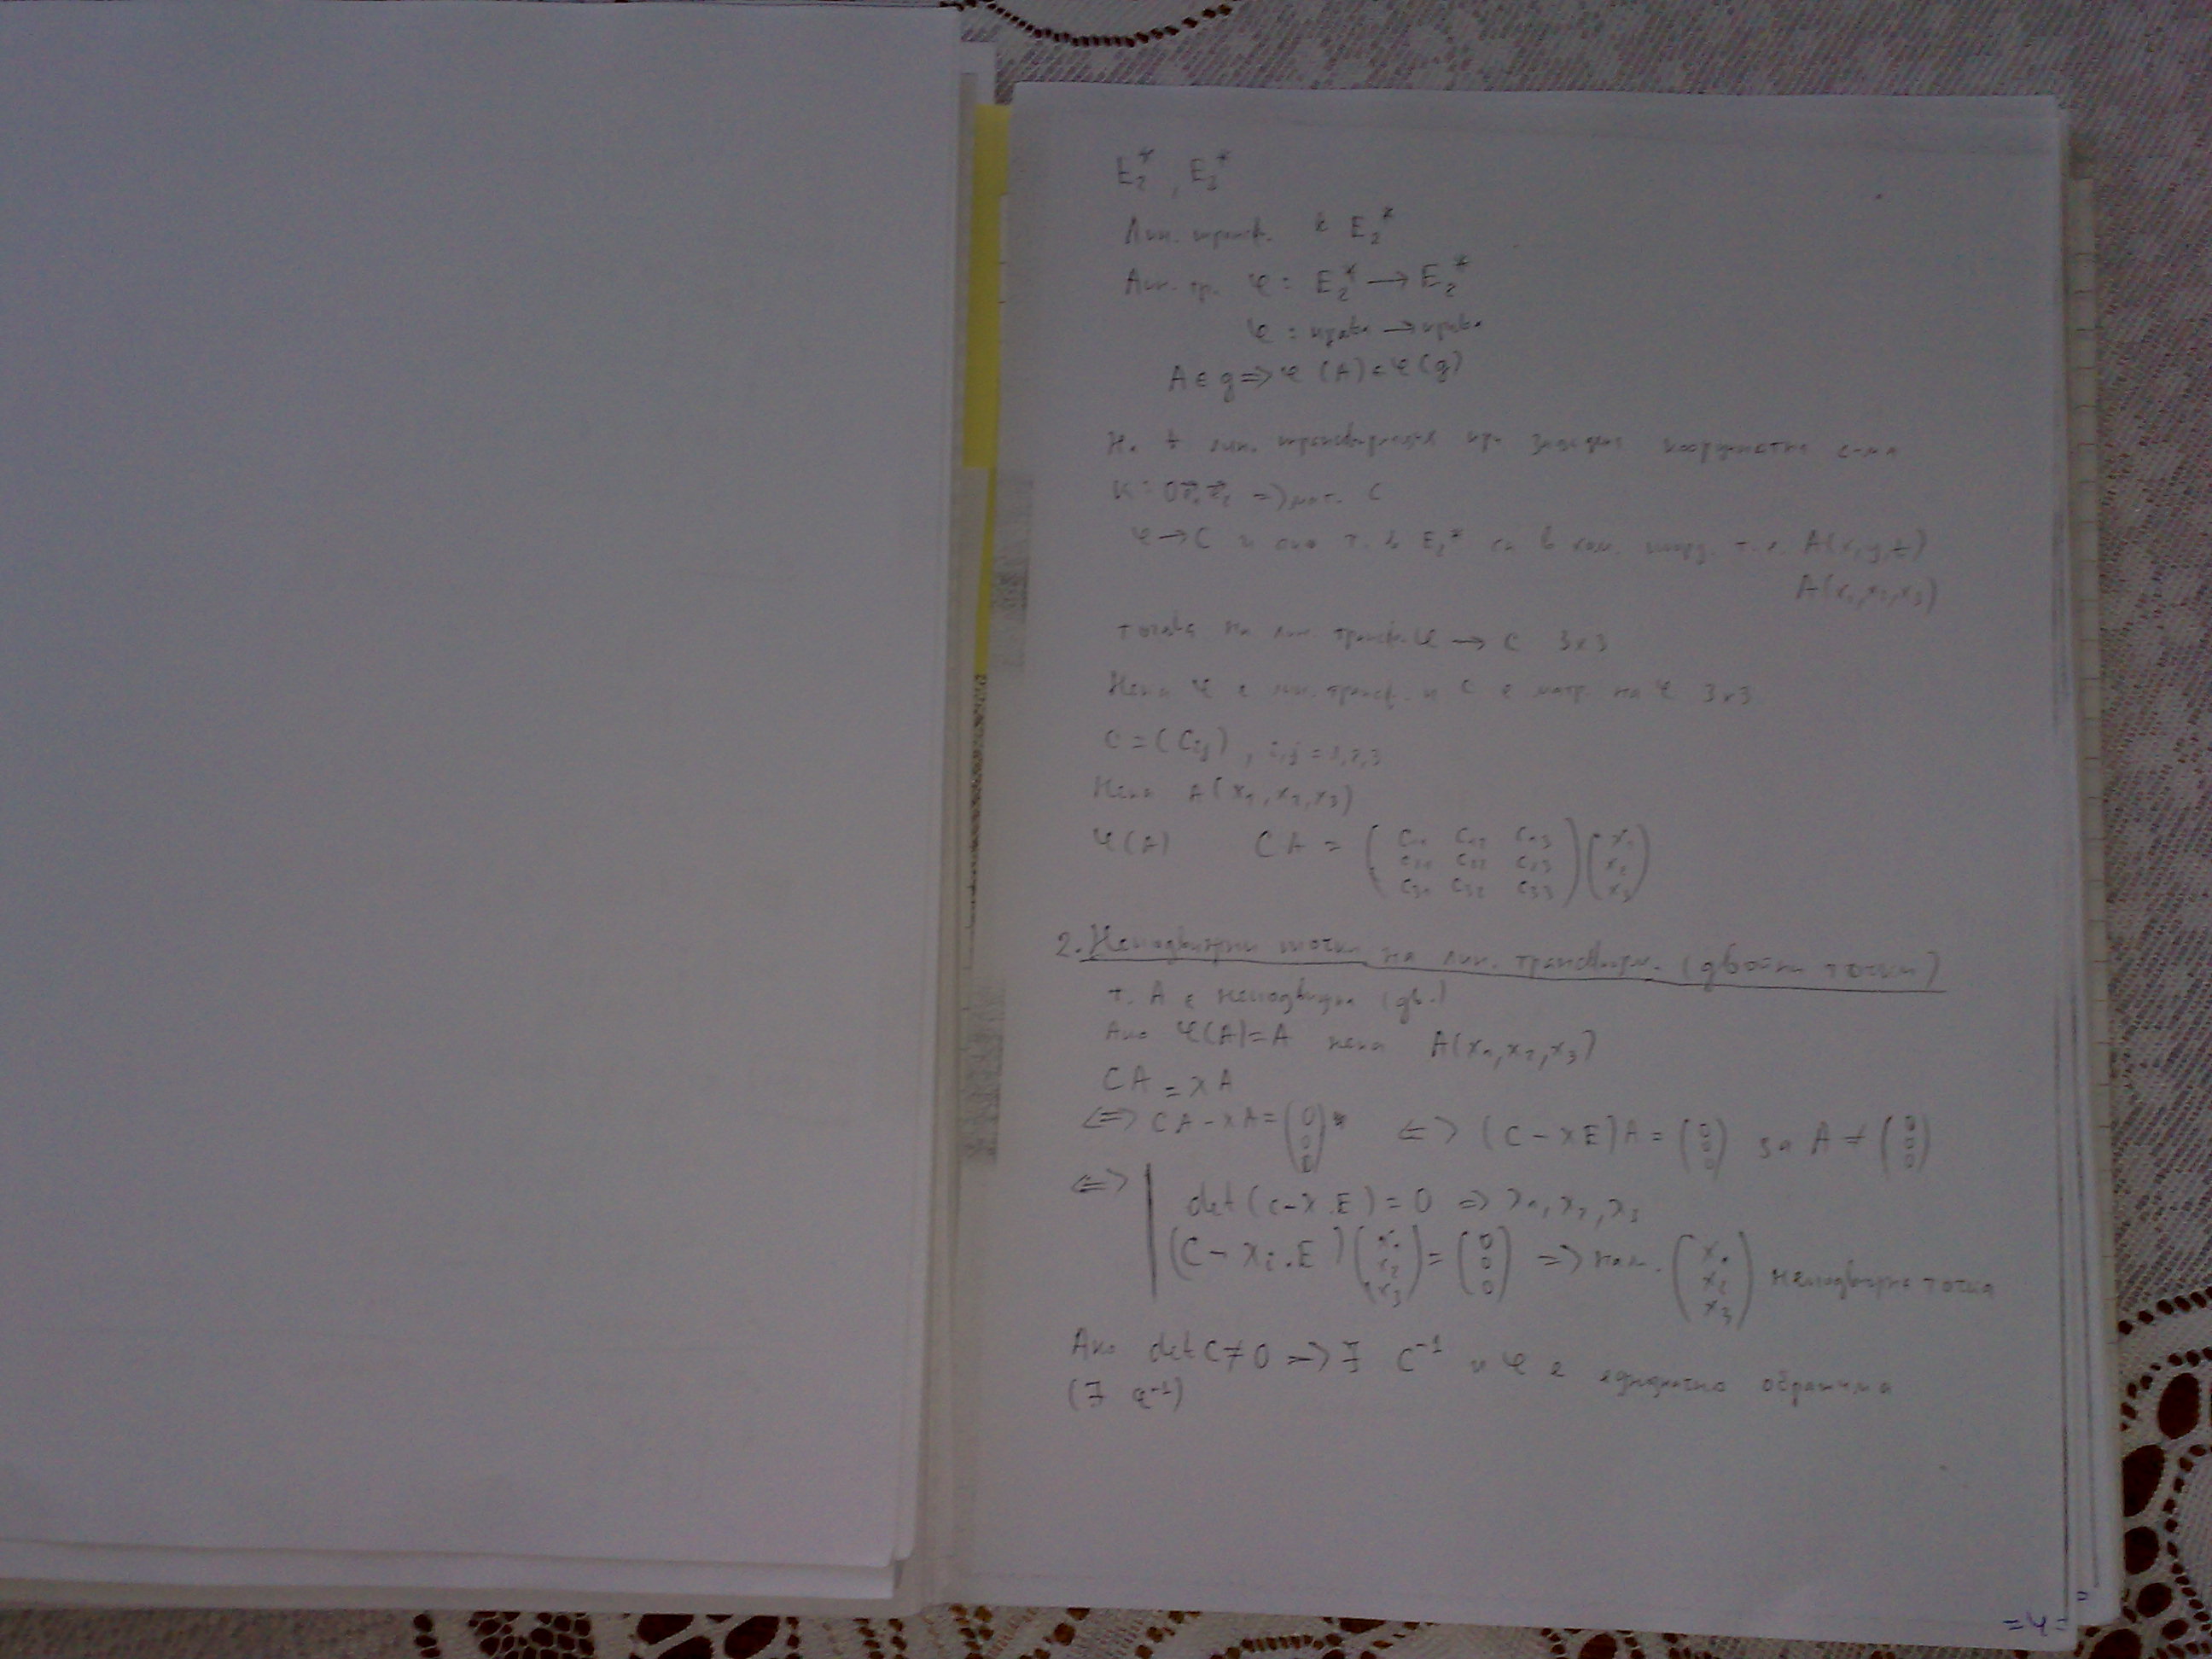 E₂*, E₃*
Лин. трансф. в E₂*
Лин. тр. φ : E₂* → E₂*
φ : права → права
A ∈ g => φ(A) ∈ φ(g)
На ∀ лин. трансформация при зададена координатна с-ма
K = Oe⃗₁e⃗₂ => мат. C
φ → C и ако т. в E₂* са в хом. коорд. т.е. A(x,y,t)
A(x₁,x₂,x₃)
тогава на лин. трансф. φ → C 3x3
Нека φ е лин. трансф. и C е матр. на φ 3x3
C = (Cij), i,j = 1,2,3
Нека A(x₁,x₂,x₃)
φ(A) CA = (c₁₁ c₁₂ c₁₃; c₂₁ c₂₂ c₂₃; c₃₁ c₃₂ c₃₃)(x₁; x₂; x₃)
2. Неподвижни точки на лин. трансформ. (двойни точки)
т. A е неподвижна (дв.)
Ако φ(A)=A нека A(x₁,x₂,x₃)
CA = λA
<=> CA - λA = (0; 0; 0) <=> (C - λE)A = (0; 0; 0) за A ≠ (0; 0; 0)
<=> | det(C-λ.E) = 0 => λ₁, λ₂, λ₃
(C - λi.E)(x₁; x₂; x₃) = (0; 0; 0) => нам. (x₁; x₂; x₃) неподвижна точка
Ако det C ≠ 0 => ∃ C⁻¹ и φ е еднозначно обратима
(∃ φ⁻¹)
=4=